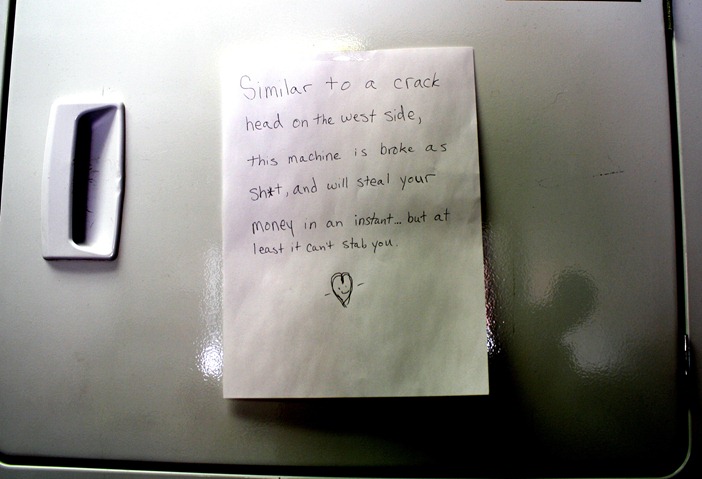 Similar to a crack
head on the west side,
this machine is broke as
sh*t, and will steal your
money in an instant... but at
least it can't stab you.